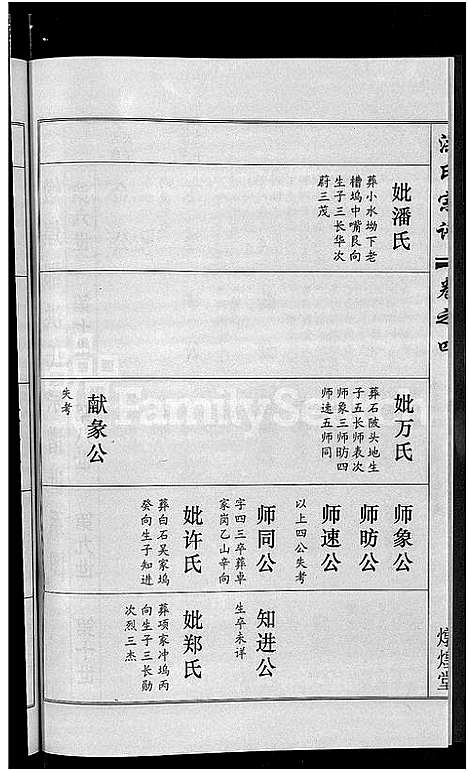 汪氏宗谱
卷之四
妣潘氏
葬小水坳下老
槽坞中嘴艮向
生子三长华次
蔚三茂
妣万氏
葬石陂头地生
子五长师表次
师象三师昉四
师速五师同
献彖公
失考
师象公
师昉公
师速公
以上四公失考
师同公
字四三卒葬卓
家岗乙山辛向
妣许氏
葬白石吴家坞
癸向生子知进
知进公
生卒未详
妣郑氏
葬项家冲坞丙
向生子三长勋
次烈三杰
燉煌堂
FamilySearch